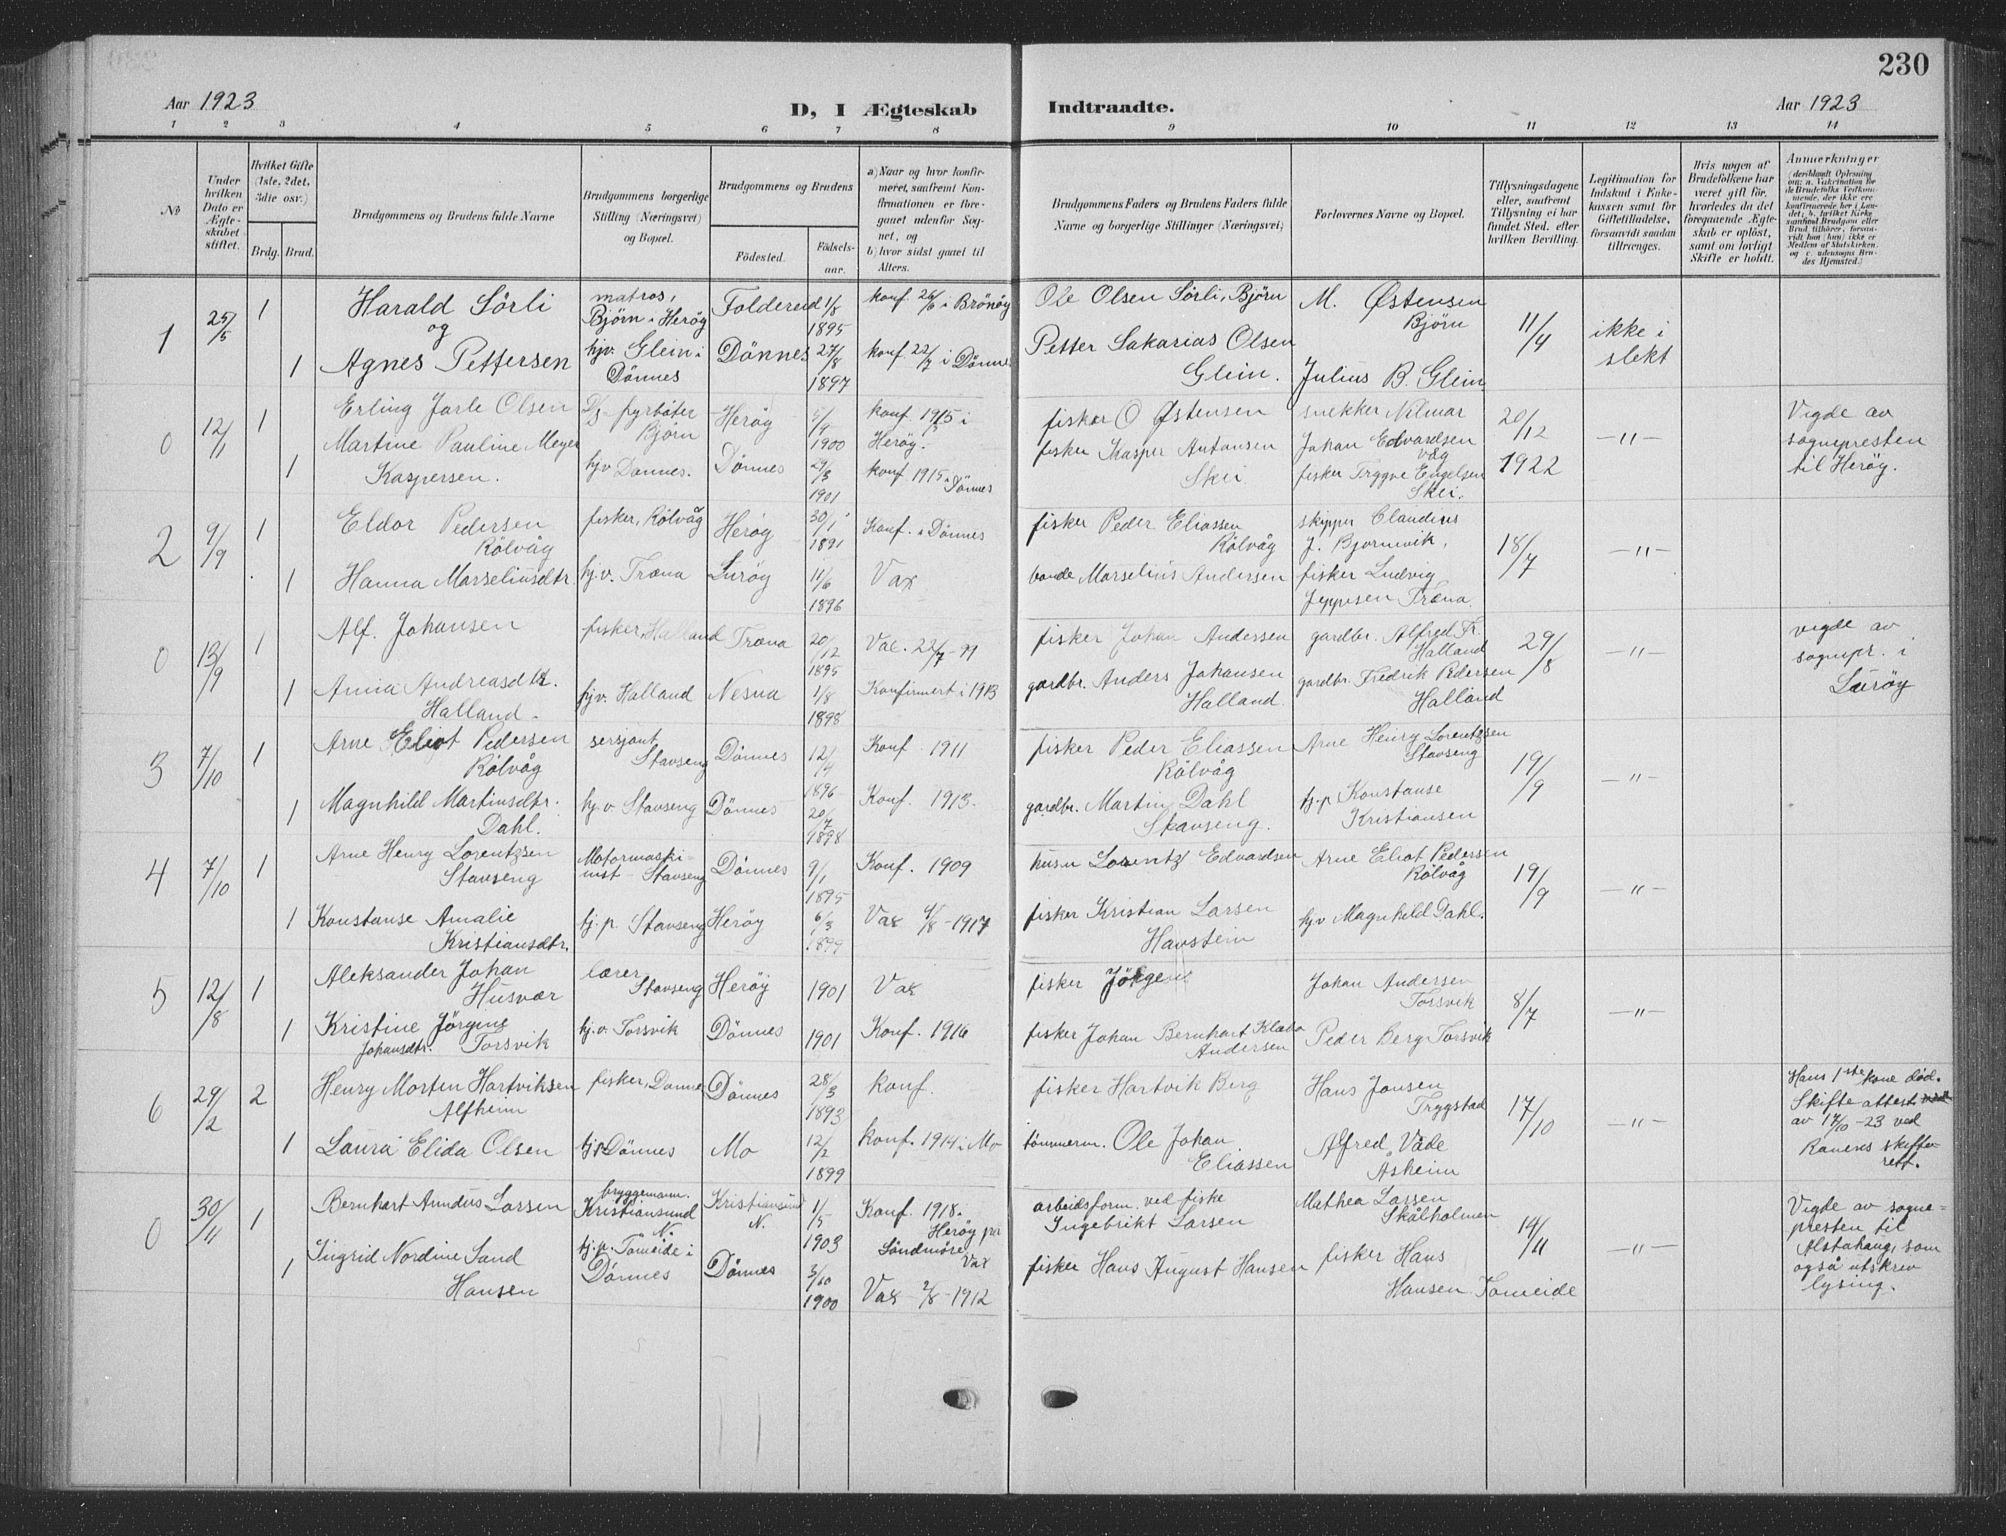 230
Aar 1923
D, I Ægteskab Indtraadte.
Aar 1923
1 2 3 4 5 6 7 8 9 10 11 12 13 14
No
Under hvilken Dato er Ægteskabet stiftet.
Hvilket Gifte (1ste, 2det, 3die osv.)
Brdg. Brud.
Brudgommens og Brudens fulde Navne
Brudgommens borgerlige Stilling (Næringsvei) og Bopæl.
Brudgommens og Brudens
Fødested.
Fødselsaar.
a) Naar og hvor konfirmeret, saafremt Konfirmationen er foregaaet udenfor Sognet, og
b) hvor sidst gaaet til Alters.
Brudgommens Faders og Brudens Faders fulde Navne og borgerlige Stillinger (Næringsvei)
Forlovernes Navne og Bopæl.
Tillysningsdagene eller, saafremt Tillysning ei har fundet Sted, efter hvilken Bevilling.
Legitimation for Indskud i Enkekassen samt for Giftetilladelse, forsaavidt saadan tiltrænges.
Hvis nogen af Brudefolkene har været gift før, hvorledes da det foregaaende Ægteskab er opløst, samt om lovligt Skifte er holdt.
Anmerkninger
1 25/5 1 Harald Sörli matros, Björn i Herøy Foldereid 1/8 1895 konf. 26/6 i Brönöy Ole Olsen Sörli, Björn M. Østensen Björn 11/4 ikke i slekt
og
1 Agnes Pettersen hjv. Glein i Dönnes Dönnes 27/8 1897 konf 22/7 i Dönnes Petter Sakarias Olsen Glein. Julius B. Glein
0 12/1 1 Erling Jarle Olsen fyrbøter Björn Herøy 1900 konf 1915 i Herøy. fisker O Østensen snekker Nilmar Johan Edvardsen 20/12 1922 -"- Vigde av sognepresten til Herøy.
1 Martine Pauline Meyer Kaspersen. hjv Dønnes. Dönnes 29/3 1901 konf 1915 i Dönnes fisker Kasper Antonsen Skei fisker Tryggve Engelsen Skei.
2 9/9 1 Eldor Pedersen Rölvåg fisker, Rölvåg Herøy 30/1 1891 Konf. i Dönnes fisker Peder Eliassen Rölvåg skipper Claudius J. Bjørnvik, 18/7 -"-
1 Hanna Marseliusdtr hj.v. Træna Lurøy 11/6 1896 Vax bonde Marselius Andersen fisker Ludvig Jeppesen Træna
0 13/9 1 Alf. Johansen fisker, Halland Træna 20/12 1895 Vac. 22/7-99 fisker Johan Andersen gardbr. Alfred Fr. Halland 29/8 -"- vigde av sognepr. i Lurøy
1 Anna Andreasdtr. Halland. hjv. Halland Nesna 1/8 1898 Konfirmert i 1913 gardbr. Anders Johansen Halland. gardbr. Fredrik Pedersen Halland
3 7/10 1 Arne Eliot Pedersen Rölvåg sersjant Stavseng Dönnes 12/4 1896 Konf. 1911 fisker Peder Eliassen Rölvåg Arne Henry Lorentzsen Stavseng 19/9 -"-
1 Magnhild Martinsdtr. Dahl. hj.v. Stavseng Dönnes 20/7 1898 Konf. 1913. gardbr. Martin Dahl Skavseng. hj.p Konstanse Kristiansen
4 7/10 1 Arne Henry Lorentzsen Stavseng Motormaskinist - Stavseng Dönnes 9/1 1895 Konf. 1909 husm Lorentz Edvardsen Arne Eliot Pedersen Rölvåg 19/9 -"-
1 Konstanse Amalie Kristiansdtr. hj.p. Stavseng Herøy 6/3 1899 Vax 4/8-1917 fisker Kristian Larsen Havstein hjv Magnhild Dahl.
5 12/8 1 Aleksander Johan Husvær lærer Stavseng Herøy 1901 Vax fisker Jörgen Johan Andersen Torsvik 8/7 -"-
1 Kristine Jörgine Johansdtr. Torsvik hj.v. Torsvik Dönnes 1901 Konf. 1916 fisker Johan Bernhart Klabo Andersen Peder Berg Torsvik
6 29/12 2 Henry Morten Hartviksen Alfheim fisker, Dønnes Dönnes 28/3 1893 konf. fisker Hartvik Berg Hans Jonsen Trygstad 17/10 -"- Hans 1ste kone död. Skifteattest av 17/10-23 ved Ranens skifterett.
1 Laura Elida Olsen hjv Dönnes Mo 12/2 1899 konf. 1914 i Mo tömmerm. Ole Johan Eliassen Alfred Våde Åsheim
0 30/11 1 Bernhart Anndus Larsen bryggemann. Kristiansund N. Kristiansund N. 1/5 1903 Konf. 1918 i Herøy på Söndmöre Vax arbeidsform. ved fiske Ingebrikt Larsen Mathea Larsen Skålholmen 14/11 -"- Vigde av sognepresten til Alstahaug, som også utskrev lysing.
1 Ingrid Nordine Sand Hansen hj.p. Tömeide i Dönnes Dönnes 3/10 1900 Vax 2/8-1912 fisker Hans August Hansen fisker Hans Hansen Tömeide